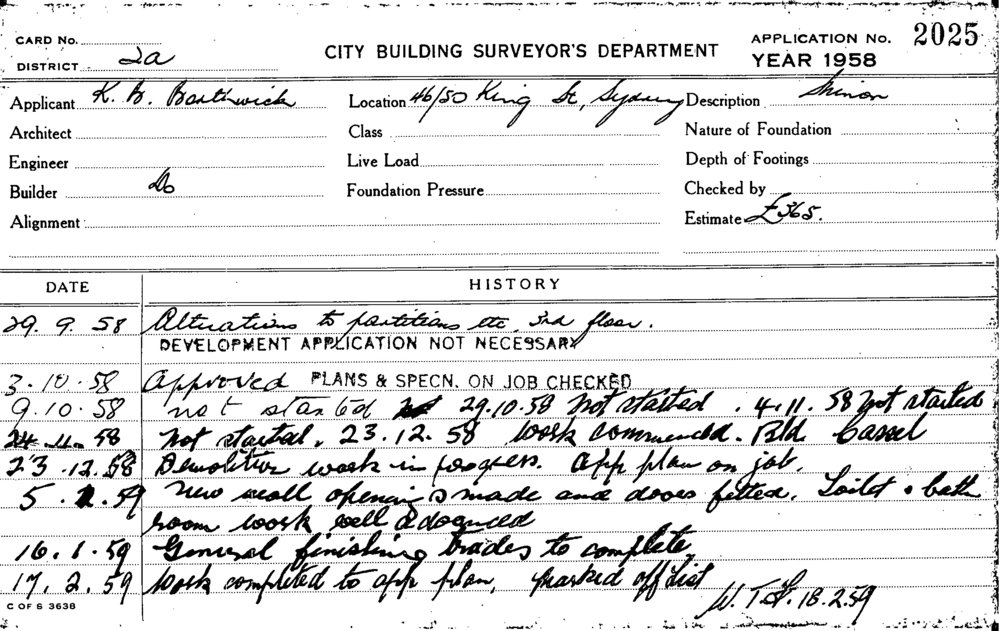 CARD No.
DISTRICT 2a
CITY BUILDING SURVEYOR'S DEPARTMENT
APPLICATION No. 2025
YEAR 1958
Applicant K. B. Borthwick Location 46/50 King St, Sydney Description Minor
Architect Class Nature of Foundation
Engineer Live Load Depth of Footings
Builder Do Foundation Pressure Checked by
Alignment Estimate £365.
DATE HISTORY
29. 9. 58 Alterations to partitions etc. 3rd floor.
DEVELOPMENT APPLICATION NOT NECESSARY
3. 10. 58 Approved PLANS & SPECN. ON JOB CHECKED
9. 10. 58 not started 29.10.58 Not started. 4. 11. 58 Not started
24. 11. 58 Not started. 23. 12. 58 Work commenced.
23. 12. 58 Demolition work in progress. App plan on job.
5. 1. 59 New wall openings made and doors fitted. Toilet & bath
room work well advanced
16. 1. 59 General finishing trades to complete.
17. 2. 59 Work completed to app plan. Marked off List
18.2.59
C OF S 3638